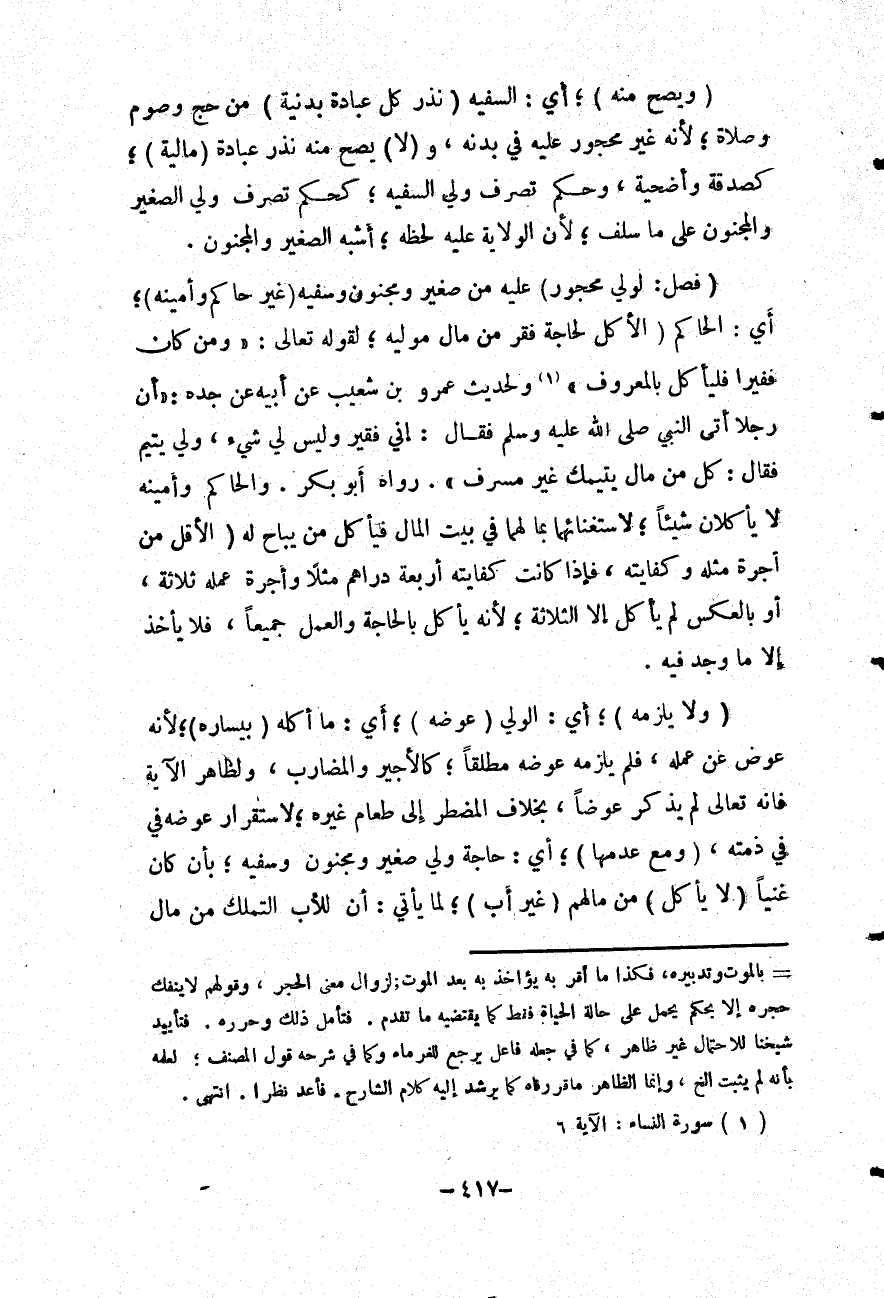 ( ويصح منه ) ؛ أي : السفيه ( نذر كل عبادة بدنية ) من حج وصوم
وصلاة ؛ لأنه غير محجور عليه في بدنه ، و (لا) يصح منه نذر عبادة (مالية ) ؛
كصدقة وأضحية ، وحكم تصرف ولي السفيه ؛ كحكم تصرف ولي الصغير
والمجنون على ما سلف ؛ لأن الولاية عليه لحظه ؛ أشبه الصغير والمجنون .
( فصل: لولي محجور) عليه من صغير ومجنون وسفيه(غير حاكم وأمينه)؛
أَي : الحاكم ( الأكل لحاجة فقر من مال موليه ؛ لقوله تعالى : « ومن كان
فقيرا فليأكل بالمعروف » (١) ولحديث عمرو بن شعيب عن أبيه عن جده :«أن
رجلا أتى النبي صلى الله عليه وسلم فقال : اني فقير وليس لي شيء ، ولي يتيم
فقال : كل من مال يتيمك غير مسرف » . رواه أبو بكر . والحاكم وأمينه
لا يأكلان شيئاً ؛ لاستغنائهما بما لهما في بيت المال فيأكل من يباح له ( الأقل من
أجرة مثله وكفايته ، فإذا كانت كفايته أربعة دراهم مثلًا وأجرة عمله ثلاثة ،
أو بالعكس لم يأكل إلا الثلاثة ؛ لأنه يأكل بالحاجة والعمل جميعاً ، فلا يأخذ
إلا ما وجد فيه .
( ولا يلزمه ) ؛ أي : الولي ( عوضه ) ؛ أَي : ما أكله ( بيساره)؛لأنه
عوض عن عمله ، فلم يلزمه عوضه مطلقاً ؛ كالأجير والمضارب ، ولظاهر الآية
فانه تعالى لم يذكر عوضاً ، بخلاف المضطر إلى طعام غيره ؛لاستقرار عوضه في
في ذمته ، ( ومع عدمها ) ؛ أي : حاجة ولي صغير ومجنون وسفيه ؛ بأن كان
غنياً ( لا يأكل ) من مالهم ( غير أب ) ؛ لما يأتي : أن للأب التملك من مال
= بالموت وتدبيره، فكذا ما أقر به يؤاخذ به بعد الموت;لزوال معنى الحجر ، وقولهم لاينفك
حجره إلا بحكم يحمل على حالة الحياة فقط كما يقتضيه ما تقدم . فتأمل ذلك وحرره . فتأييد
شيخنا للاحتمال غير ظاهر ، كما في جعله فاعل يرجع للغرماء وكما في شرحه قول المصنف ؛ لعله
بأنه لم يثبت الخ ، وإنما الظاهر ماقررناه كما يرشد إليه كلام الشارح . فأعد نظرا . انتهى .
( ١ ) سورة النساء : الآية ٦
-٤١٧-